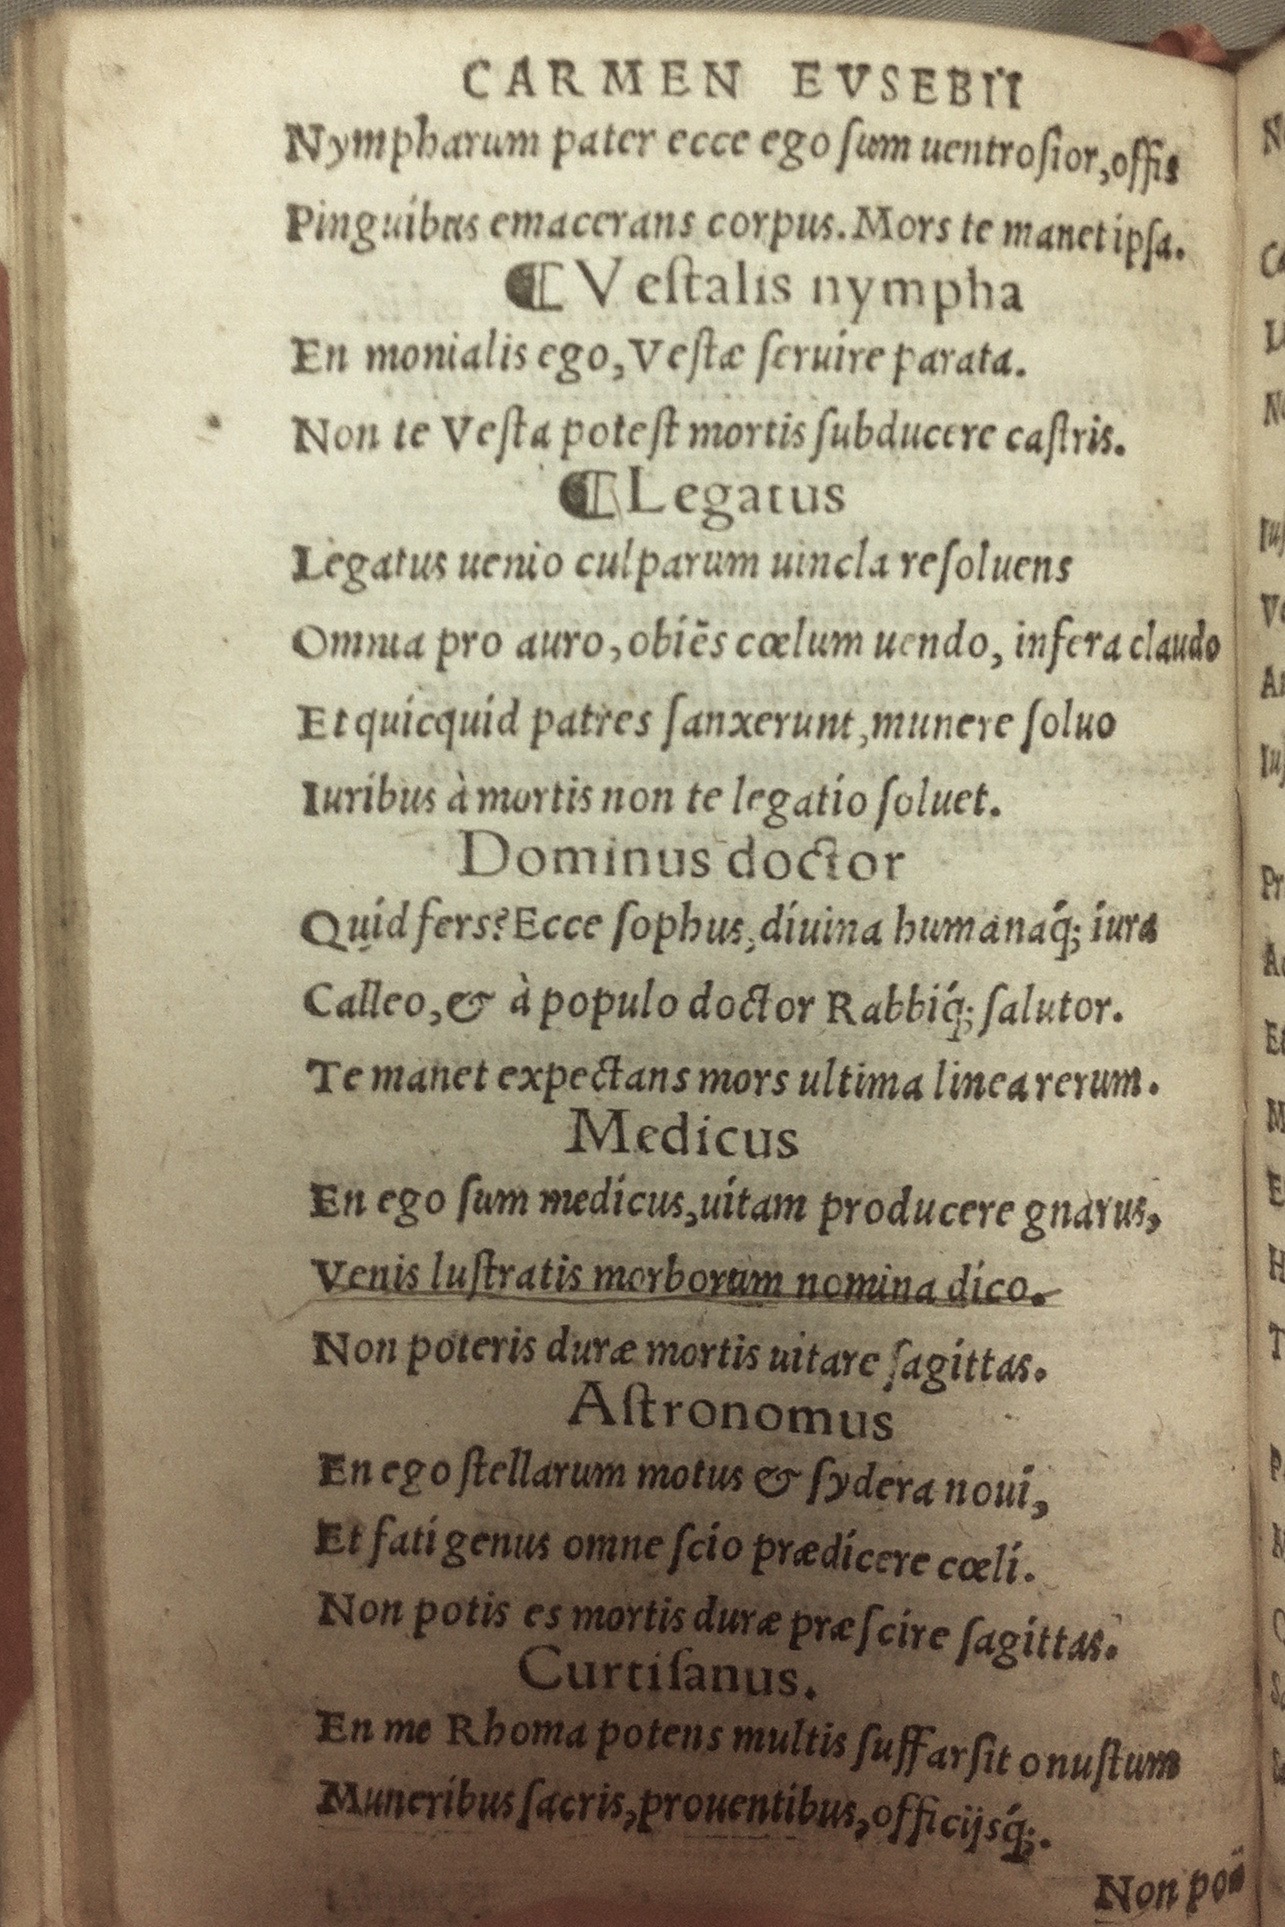 CARMEN EVSEBII
Nympharum pater ecce ego ſum uentroſior, offis
Pinguibus emacerans corpus. Mors te manet ipſa.
⸿ Veſtalis nympha
En monialis ego, Veſtæ ſeruire parata.
Non te Veſta poteſt mortis ſubducere caſtris.
⸿ Legatus
Legatus uenio culparum uincla reſoluens
Omnia pro auro, obiẽs cœlum uendo, infera claudo
Et quicquid patres ſanxerunt, munere ſoluo
Iuribus à mortis non te legatio ſoluet.
Dominus doctor
Quid fers? Ecce ſophus, diuina humanaq́; iura
Calleo, & à populo doctor Rabbiq́; ſalutor.
Te manet expectans mors ultima linea rerum.
Medicus
En ego ſum medicus, uitam producere gnarus,
Venis luſtratis morborum nomina dico.
Non poteris duræ mortis uitare ſagittas.
Aſtronomus
En ego ſtellarum motus & ſydera noui,
Et fati genus omne ſcio prædicere cœli.
Non potis es mortis duræ præſcire ſagittas.
Curtiſanus.
En me Rhoma potens multis ſuffarſit onuſtum
Muneribus ſacris, prouentibus, officijsq́;.
Non